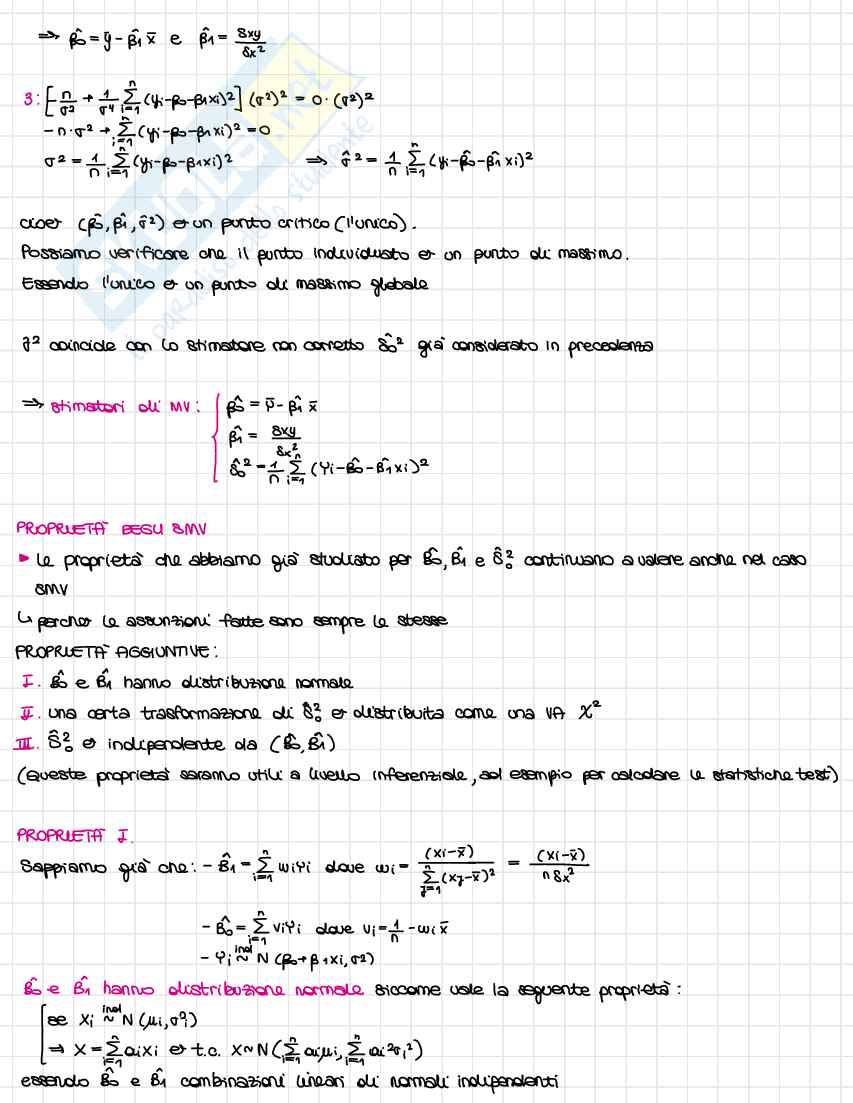 ⇒ β̂0 = ȳ - β̂1 x̄ e β̂1 = sxy / sx²
3: [-n/σ² + 1/σ⁴ Σⁿᵢ₌₁ (yi-β0-β1xi)²] (σ²)² = 0 · (σ²)²
-n·σ² + Σⁿᵢ₌₁ (yi-β0-β1xi)² = 0
σ² = 1/n Σⁿᵢ₌₁ (yi-β0-β1xi)² ⇒ σ̂² = 1/n Σⁿᵢ₌₁ (yi-β̂0-β̂1xi)²
cioè (β̂0, β̂1, σ̂²) è un punto critico (l'unico).
Possiamo verificare che il punto individuato è un punto di massimo.
Essendo l'unico è un punto di massimo globale
σ̂² coincide con lo stimatore non corretto Ŝ0² già considerato in precedenza
⇒ stimatori di MV: { β̂0 = ȳ - β̂1 x̄
β̂1 = sxy / sx²
Ŝ0² = 1/n Σⁿᵢ₌₁ (Yi-β̂0-β̂1xi)²
PROPRIETÀ DEGLI SMV
▸ Le proprietà che abbiamo già studiato per B̂0, B̂1 e Ŝ0² continuano a valere anche nel caso
SMV
↳ perché le assunzioni fatte sono sempre le stesse
PROPRIETÀ AGGIUNTIVE:
I. B̂0 e B̂1 hanno distribuzione normale
II. una certa trasformazione di Ŝ0² è distribuita come una VA χ²
III. Ŝ0² è indipendente da (B̂0, B̂1)
(Queste proprietà saranno utili a livello inferenziale, ad esempio per calcolare le statistiche test)
PROPRIETÀ I.
Sappiamo già che: - B̂1 = Σⁿᵢ₌₁ wiYi dove wi = (xi-x̄) / Σⁿⱼ₌₁ (xj-x̄)² = (xi-x̄) / n sx²
- B̂0 = Σⁿᵢ₌₁ viYi dove vi = 1/n - wi x̄
- Yi ~ind N(β0+β1xi, σ²)
B̂0 e B̂1 hanno distribuzione normale siccome vale la seguente proprietà:
[se Xi ~ind N(μi, σi²)
⇒ X = Σⁿᵢ₌₁ aiXi è t.c. X~N(Σⁿᵢ₌₁ aiμi, Σⁿᵢ₌₁ ai²σi²)
essendo B̂0 e B̂1 combinazioni lineari di normali indipendenti
SKUOLA.net
il paradiso dello studente